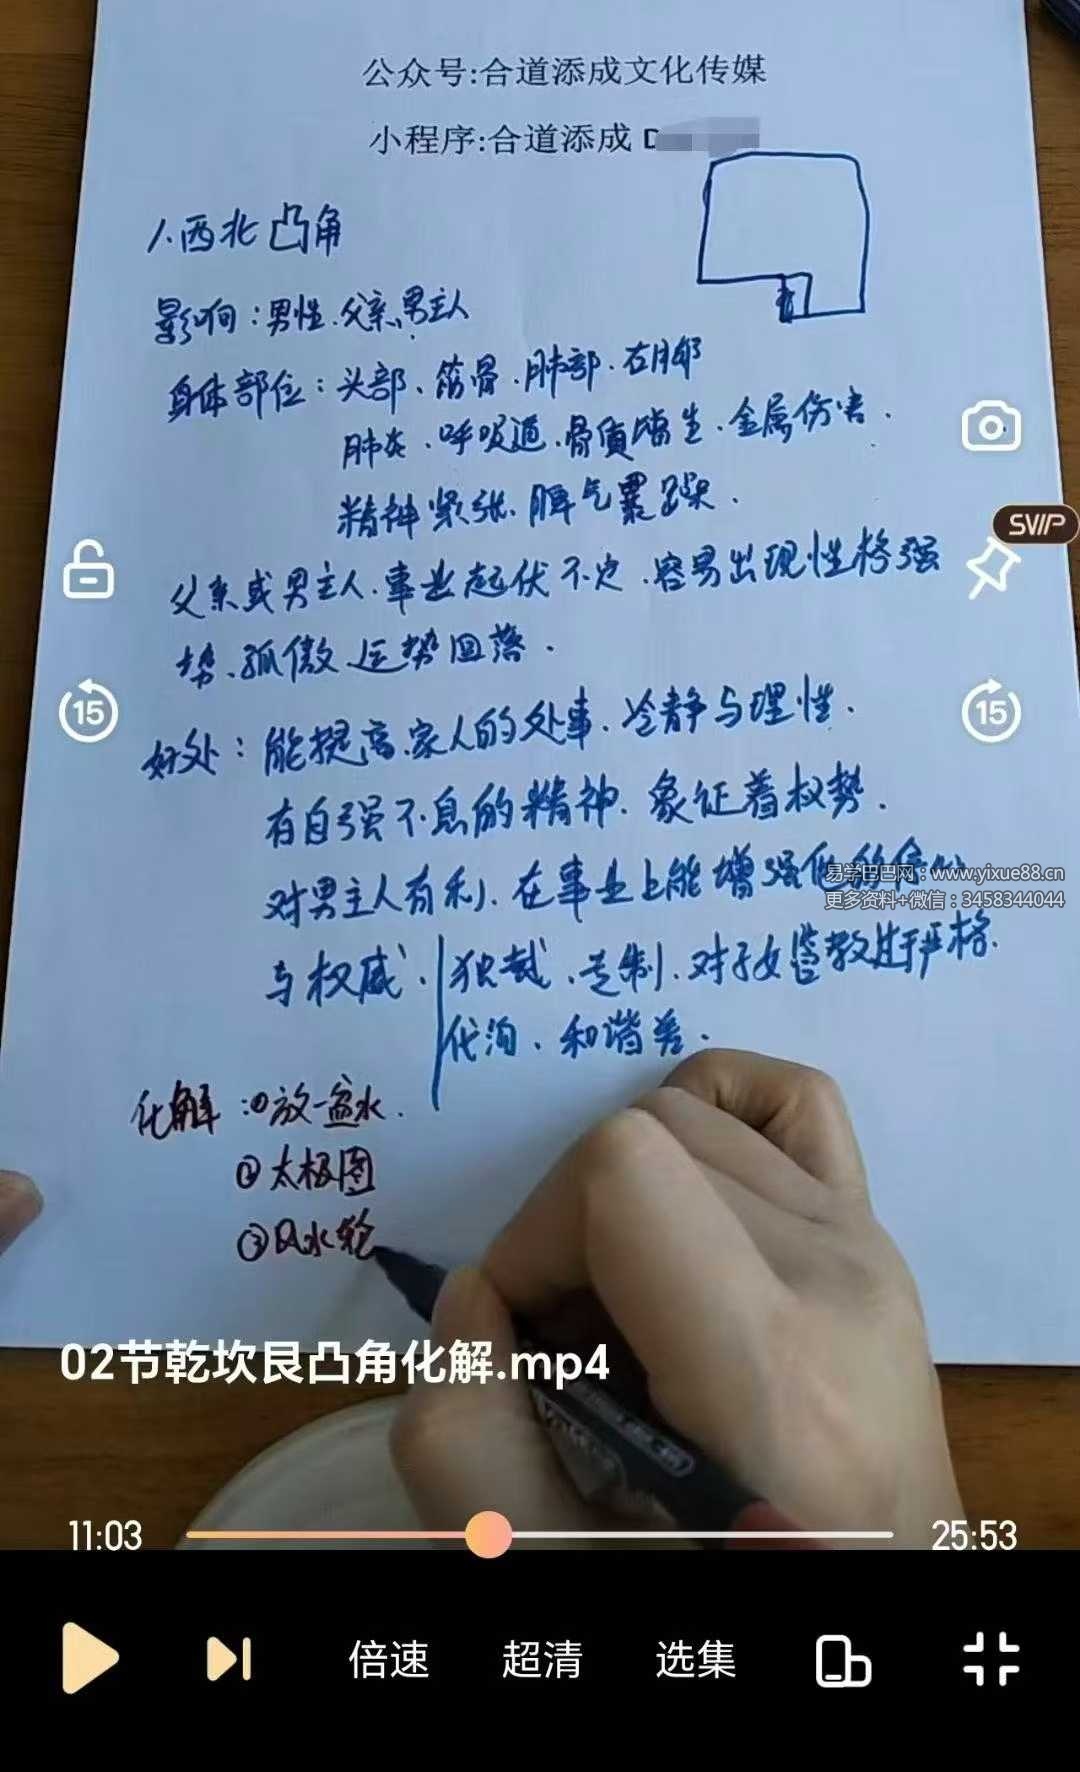 公众号:合道添成文化传媒
小程序:合道添成 D
1.西北凸角
影响:男性.父亲、男主人
身体部位:头部、筋骨.肺部.右脚
肺炎.呼吸道.骨质增生.金属伤害.
精神紧张.脾气暴躁.
SVIP
父亲或男主人.事业起伏不定.容易出现性格强
势、孤傲.运势回落.
15
15
好处:能提高家人的处事、冷静与理性.
有自强不息的精神.象征着权势.
对男主人有利.在事业上能增强他的
易学巴巴网:www.yixue88.cn
更多资料+微信:3458344044
与权威.独裁.专制.对子女管教过于严格.
代沟、和谐差.
化解:①放一盆水.
②太极图
③风水轮
02节乾坎艮凸角化解.mp4
11:03
25:53
倍速
超清
选集